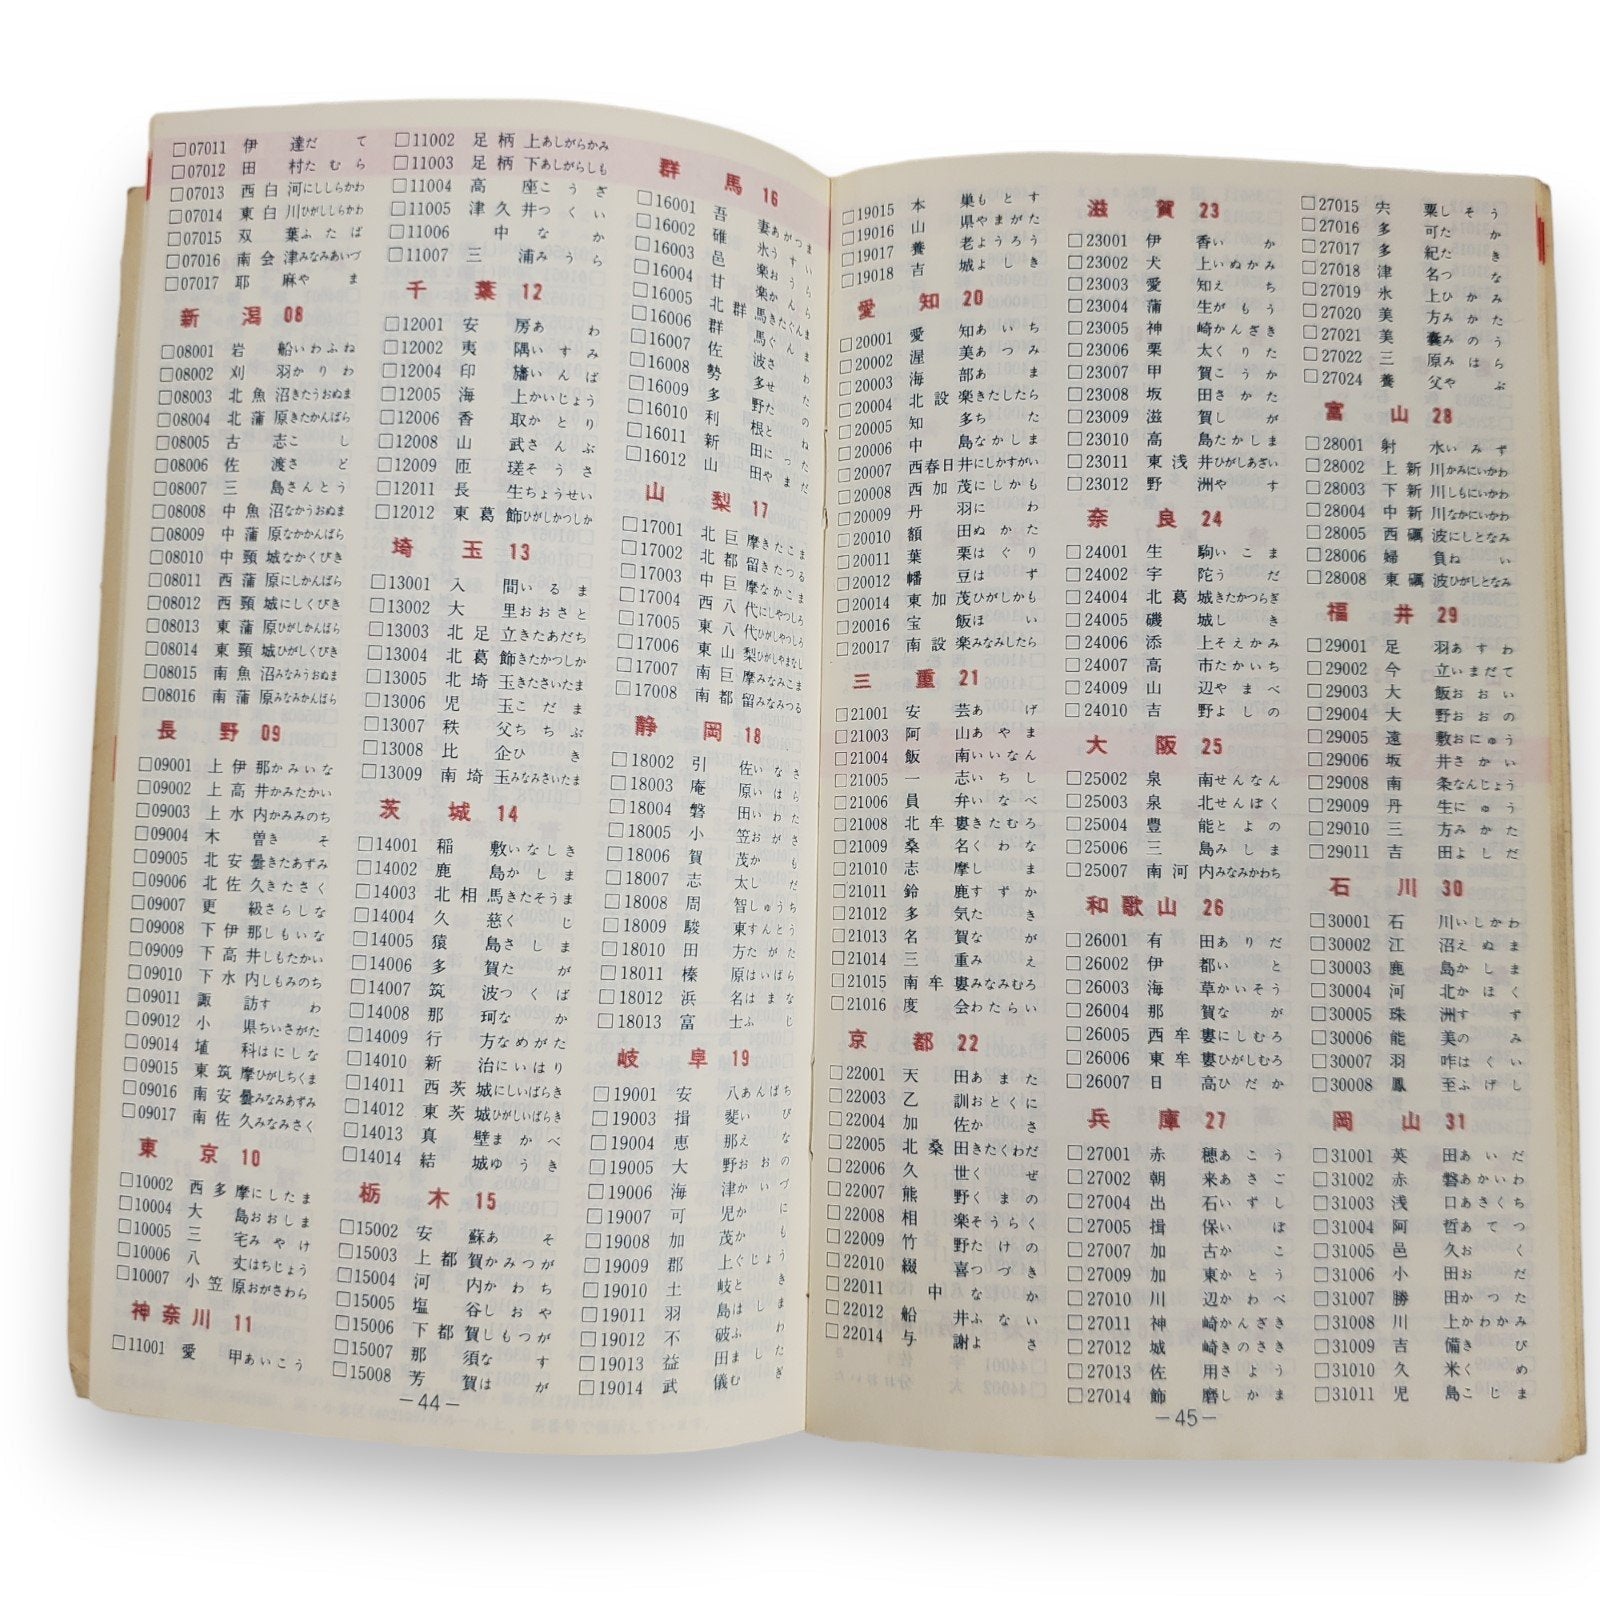 □07011 伊達だて
□07012 田村たむら
□07013 西白河にししらかわ
□07014 東白川ひがししらかわ
□07015 双葉ふたば
□07016 南会津みなみあいづ
□07017 耶麻やま
新潟 08
□08001 岩船いわふね
□08002 刈羽かりわ
□08003 北魚沼きたうおぬま
□08004 北蒲原きたかんばら
□08005 古志こし
□08006 佐渡さど
□08007 三島さんとう
□08008 中魚沼なかうおぬま
□08009 中蒲原なかかんばら
□08010 中頸城なかくびき
□08011 西蒲原にしかんばら
□08012 西頸城にしくびき
□08013 東蒲原ひがしかんばら
□08014 東頸城ひがしくびき
□08015 南魚沼みなみうおぬま
□08016 南蒲原みなみかんばら
長野 09
□09001 上伊那かみいな
□09002 上高井かみたかい
□09003 上水内かみみのち
□09004 木曽きそ
□09005 北安曇きたあずみ
□09006 北佐久きたさく
□09007 更級さらしな
□09008 下伊那しもいな
□09009 下高井しもたかい
□09010 下水内しもみのち
□09011 諏訪すわ
□09012 小県ちいさがた
□09014 埴科はにしな
□09015 東筑摩ひがしちくま
□09016 南安曇みなみあずみ
□09017 南佐久みなみさく
東京 10
□10002 西多摩にしたま
□10004 大島おおしま
□10005 三宅みやけ
□10006 八丈はちじょう
□10007 小笠原おがさわら
神奈川 11
□11001 愛甲あいこう
□11002 足柄上あしがらかみ
□11003 足柄下あしがらしも
□11004 高座こうざ
□11005 津久井つくい
□11006 中なか
□11007 三浦みうら
千葉 12
□12001 安房あわ
□12002 夷隅いすみ
□12004 印旛いんば
□12005 海上かいじょう
□12006 香取かとり
□12008 山武さんぶ
□12009 匝瑳そうさ
□12011 長生ちょうせい
□12012 東葛飾ひがしかつしか
埼玉 13
□13001 入間いるま
□13002 大里おおさと
□13003 北足立きたあだち
□13004 北葛飾きたかつしか
□13005 北埼玉きたさいたま
□13006 児玉こだま
□13007 秩父ちちぶ
□13008 比企ひき
□13009 南埼玉みなみさいたま
茨城 14
□14001 稲敷いなしき
□14002 鹿島かしま
□14003 北相馬きたそうま
□14004 久慈くじ
□14005 猿島さしま
□14006 多賀たが
□14007 筑波つくば
□14008 那珂なか
□14009 行方なめがた
□14010 新治にいはり
□14011 西茨城にしいばらき
□14012 東茨城ひがしいばらき
□14013 真壁まかべ
□14014 結城ゆうき
栃木 15
□15002 安蘇あそ
□15003 上都賀かみつが
□15004 河内かわち
□15005 塩谷しおや
□15006 下都賀しもつが
□15007 那須なす
□15008 芳賀はが
群馬 16
□16001 吾妻あがつま
□16002 碓氷うすい
□16003 邑楽おうら
□16004 甘楽かんら
□16005 北群馬きたぐんま
□16006 群馬ぐんま
□16007 佐波さわ
□16008 勢多せた
□16009 多野たの
□16010 利根とね
□16011 新田にった
□16012 山田やまだ
山梨 17
□17001 北巨摩きたこま
□17002 北都留きたつる
□17003 中巨摩なかこま
□17004 西八代にしやつしろ
□17005 東八代ひがしやつしろ
□17006 東山梨ひがしやまなし
□17007 南巨摩みなみこま
□17008 南都留みなみつる
静岡 18
□18002 引佐いなさ
□18003 庵原いはら
□18004 磐田いわた
□18005 小笠おがさ
□18006 賀茂かも
□18007 志太しだ
□18008 周智しゅうち
□18009 駿東すんとう
□18010 田方たがた
□18011 榛原はいばら
□18012 浜名はまな
□18013 富士ふじ
岐阜 19
□19001 安八あんぱち
□19003 揖斐いび
□19004 恵那えな
□19005 大野おおの
□19006 海津かいづ
□19007 可児かに
□19008 加茂かも
□19009 郡上ぐじょう
□19010 土岐とき
□19011 羽島はしま
□19012 不破ふわ
□19013 益田ました
□19014 武儀むぎ
—44—
□19015 本巣もとす
□19016 山県やまがた
□19017 養老ようろう
□19018 吉城よしき
愛知 20
□20001 愛知あいち
□20002 渥美あつみ
□20003 海部あま
□20004 北設楽きたしたら
□20005 知多ちた
□20006 中島なかしま
□20007 西春日井にしかすがい
□20008 西加茂にしかも
□20009 丹羽にわ
□20010 額田ぬかた
□20011 葉栗はぐり
□20012 幡豆はず
□20014 東加茂ひがしかも
□20016 宝飯ほい
□20017 南設楽みなみしたら
三重 21
□21001 安芸あげ
□21003 阿山あやま
□21004 飯南いいなん
□21005 一志いちし
□21006 員弁いなべ
□21008 北牟婁きたむろ
□21009 桑名くわな
□21010 志摩しま
□21011 鈴鹿すずか
□21012 多気たき
□21013 名賀なが
□21014 三重みえ
□21015 南牟婁みなみむろ
□21016 度会わたらい
京都 22
□22001 天田あまた
□22003 乙訓おとくに
□22004 加佐かさ
□22005 北桑田きたくわだ
□22006 久世くぜ
□22007 熊野くまの
□22008 相楽そうらく
□22009 竹野たけの
□22010 綴喜つづき
□22011 中なか
□22012 船井ふない
□22014 与謝よさ
滋賀 23
□23001 伊香いか
□23002 犬上いぬかみ
□23003 愛知えち
□23004 蒲生がもう
□23005 神崎かんざき
□23006 栗太くりた
□23007 甲賀こうか
□23008 坂田さかた
□23009 滋賀しが
□23010 高島たかしま
□23011 東浅井ひがしあざい
□23012 野洲やす
奈良 24
□24001 生駒いこま
□24002 宇陀うだ
□24004 北葛城きたかつらぎ
□24005 磯城しき
□24006 添上そえかみ
□24007 高市たかいち
□24009 山辺やまべ
□24010 吉野よしの
大阪 25
□25002 泉南せんなん
□25003 泉北せんぼく
□25004 豊能とよの
□25006 三島みしま
□25007 南河内みなみかわち
和歌山 26
□26001 有田ありだ
□26002 伊都いと
□26003 海草かいそう
□26004 那賀なが
□26005 西牟婁にしむろ
□26006 東牟婁ひがしむろ
□26007 日高ひだか
兵庫 27
□27001 赤穂あこう
□27002 朝来あさご
□27004 出石いずし
□27005 揖保いぼ
□27007 加古かこ
□27009 加東かとう
□27010 川辺かわべ
□27011 神崎かんざき
□27012 城崎きのさき
□27013 佐用さよう
□27014 飾磨しかま
□27015 宍粟しそう
□27016 多可たか
□27017 多紀たき
□27018 津名つな
□27019 氷上ひかみ
□27020 美方みかた
□27021 美嚢みのう
□27022 三原みはら
□27024 養父やぶ
富山 28
□28001 射水いみず
□28002 上新川かみにいかわ
□28003 下新川しもにいかわ
□28004 中新川なかにいかわ
□28005 西礪波にしとなみ
□28006 婦負ねい
□28008 東礪波ひがしとなみ
福井 29
□29001 足羽あすわ
□29002 今立いまだて
□29003 大飯おおい
□29004 大野おおの
□29005 遠敷おにゅう
□29006 坂井さかい
□29008 南条なんじょう
□29009 丹生にゅう
□29010 三方みかた
□29011 吉田よしだ
石川 30
□30001 石川いしかわ
□30002 江沼えぬま
□30003 鹿島かしま
□30004 河北かほく
□30005 珠洲すず
□30006 能美のみ
□30007 羽咋はくい
□30008 鳳至ふげし
岡山 31
□31001 英田あいだ
□31002 赤磐あかいわ
□31003 浅口あさくち
□31004 阿哲あてつ
□31005 邑久おく
□31006 小田おだ
□31007 勝田かつた
□31008 川上かわかみ
□31009 吉備きび
□31010 久米くめ
□31011 児島こじま
—45—